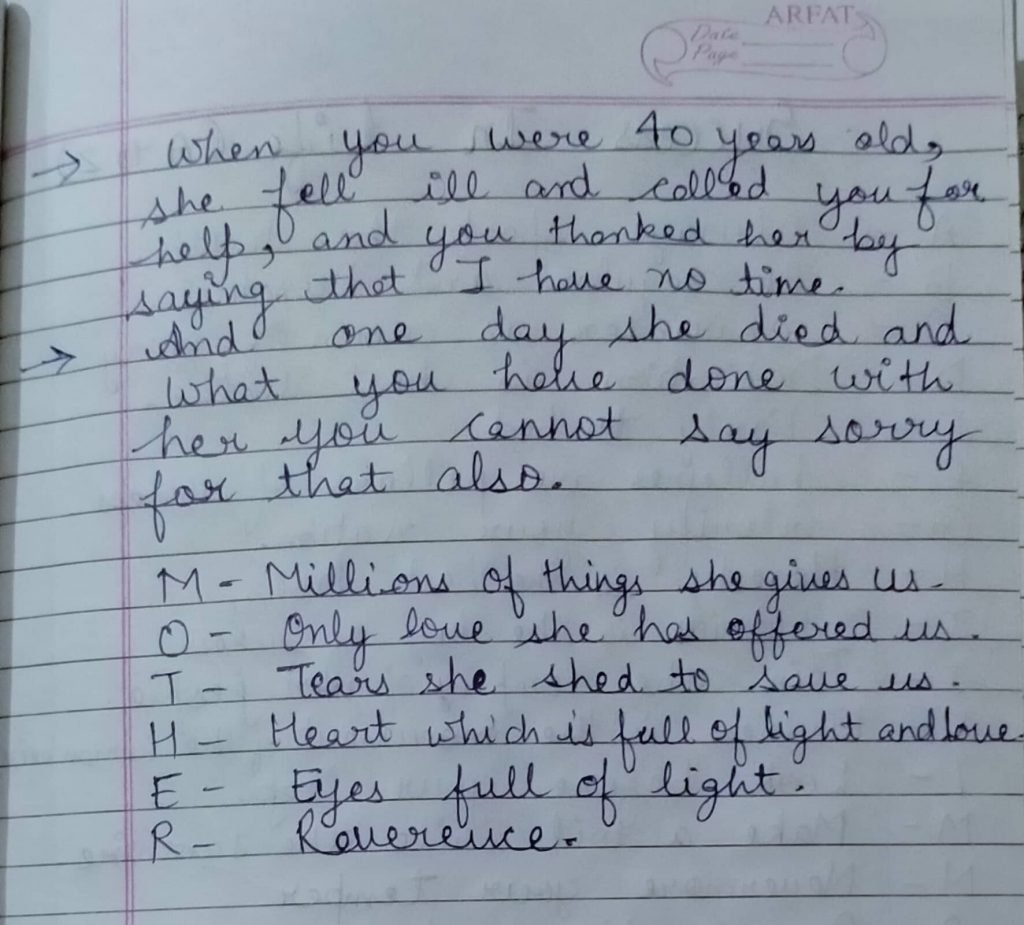 ARFAT
Date
Page
→ When you were 40 years old,
she fell ill and called you for
help, and you thanked her by
saying that I have no time.
→ And one day she died and
what you have done with
her you cannot say sorry
for that also.
M - Millions of things she gives us.
O - Only love she has offered us.
T - Tears she shed to save us.
H - Heart which is full of light and love.
E - Eyes full of light.
R - Reverence.